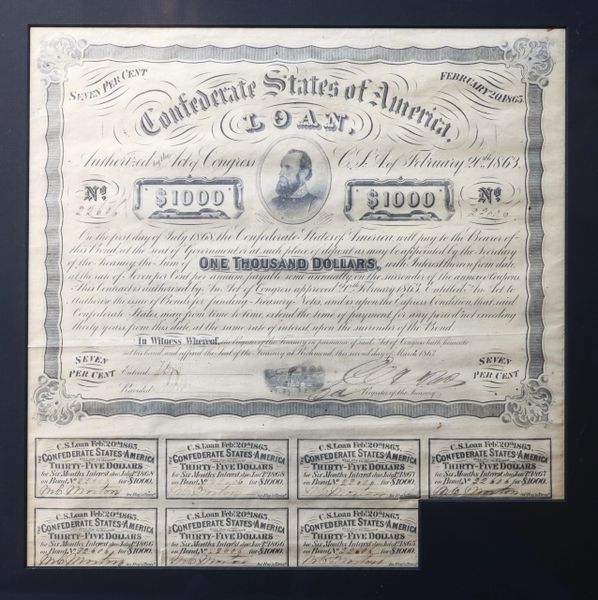 SEVEN PER CENT
FEBRUARY 20 1863.
Confederate States of America
LOAN.
Authorized by the Act of Congress C.S.A of February 20th 1863.
No. $1000 $1000 No.
22606 22606
On the first day of July 1868, the Confederate States of America, will pay to the Bearer of
this Bond, at the seat of Government or at such place of deposit as may be appointed by the Secretary
of the Treasury, the sum of ONE THOUSAND DOLLARS, with Interest thereon from date,
at the rate of Seven per Cent per annum payable semi-annually on surrender of the annexed Coupons.
This Contract is authorized by An Act of Congress approved February 1863, Entitled "An Act to
authorise the issue of Bonds for funding Treasury Notes, and is upon the Express Condition, that said
Confederate States may from time to time, extend the time of payment for any period not exceeding
thirty years from this date at the same rate of interest upon the surrender of the Bond.
In Witness Whereof, the Register of the Treasury in pursuance of said Act of Congress hath hereunto
set his hand, and affixed the Seal of the Treasury at Richmond, this second day of March 1863.
SEVEN PER CENT
Entered
Recorded
Register of the Treasury
SEVEN PER CENT
C.S. Loan Feb. 20th 1863.
THE CONFEDERATE STATES OF AMERICA
THIRTY-FIVE DOLLARS
for Six Months Interest due July 1st 1868
on Bond, No. 22606 for $1000.
C.S. Loan Feb. 20th 1863.
THE CONFEDERATE STATES OF AMERICA
THIRTY-FIVE DOLLARS
for Six Months Interest due Jany 1st 1868
on Bond, No. 22606 for $1000.
C.S. Loan Feb. 20th 1863.
THE CONFEDERATE STATES OF AMERICA
THIRTY-FIVE DOLLARS
for Six Months Interest due July 1st 1867
on Bond, No. 22606 for $1000.
C.S. Loan Feb. 20th 1863.
THE CONFEDERATE STATES OF AMERICA
THIRTY-FIVE DOLLARS
for Six Months Interest due Jany 1st 1867
on Bond, No. 22606 for $1000.
C.S. Loan Feb. 20th 1863.
THE CONFEDERATE STATES OF AMERICA
THIRTY-FIVE DOLLARS
for Six Months Interest due July 1st 1866
on Bond, No. 22606 for $1000.
C.S. Loan Feb. 20th 1863.
THE CONFEDERATE STATES OF AMERICA
THIRTY-FIVE DOLLARS
for Six Months Interest due Jany 1st 1866
on Bond, No. 22606 for $1000.
C.S. Loan Feb. 20th 1863.
THE CONFEDERATE STATES OF AMERICA
THIRTY-FIVE DOLLARS
for Six Months Interest due July 1st 1865
on Bond, No. 22606 for $1000.